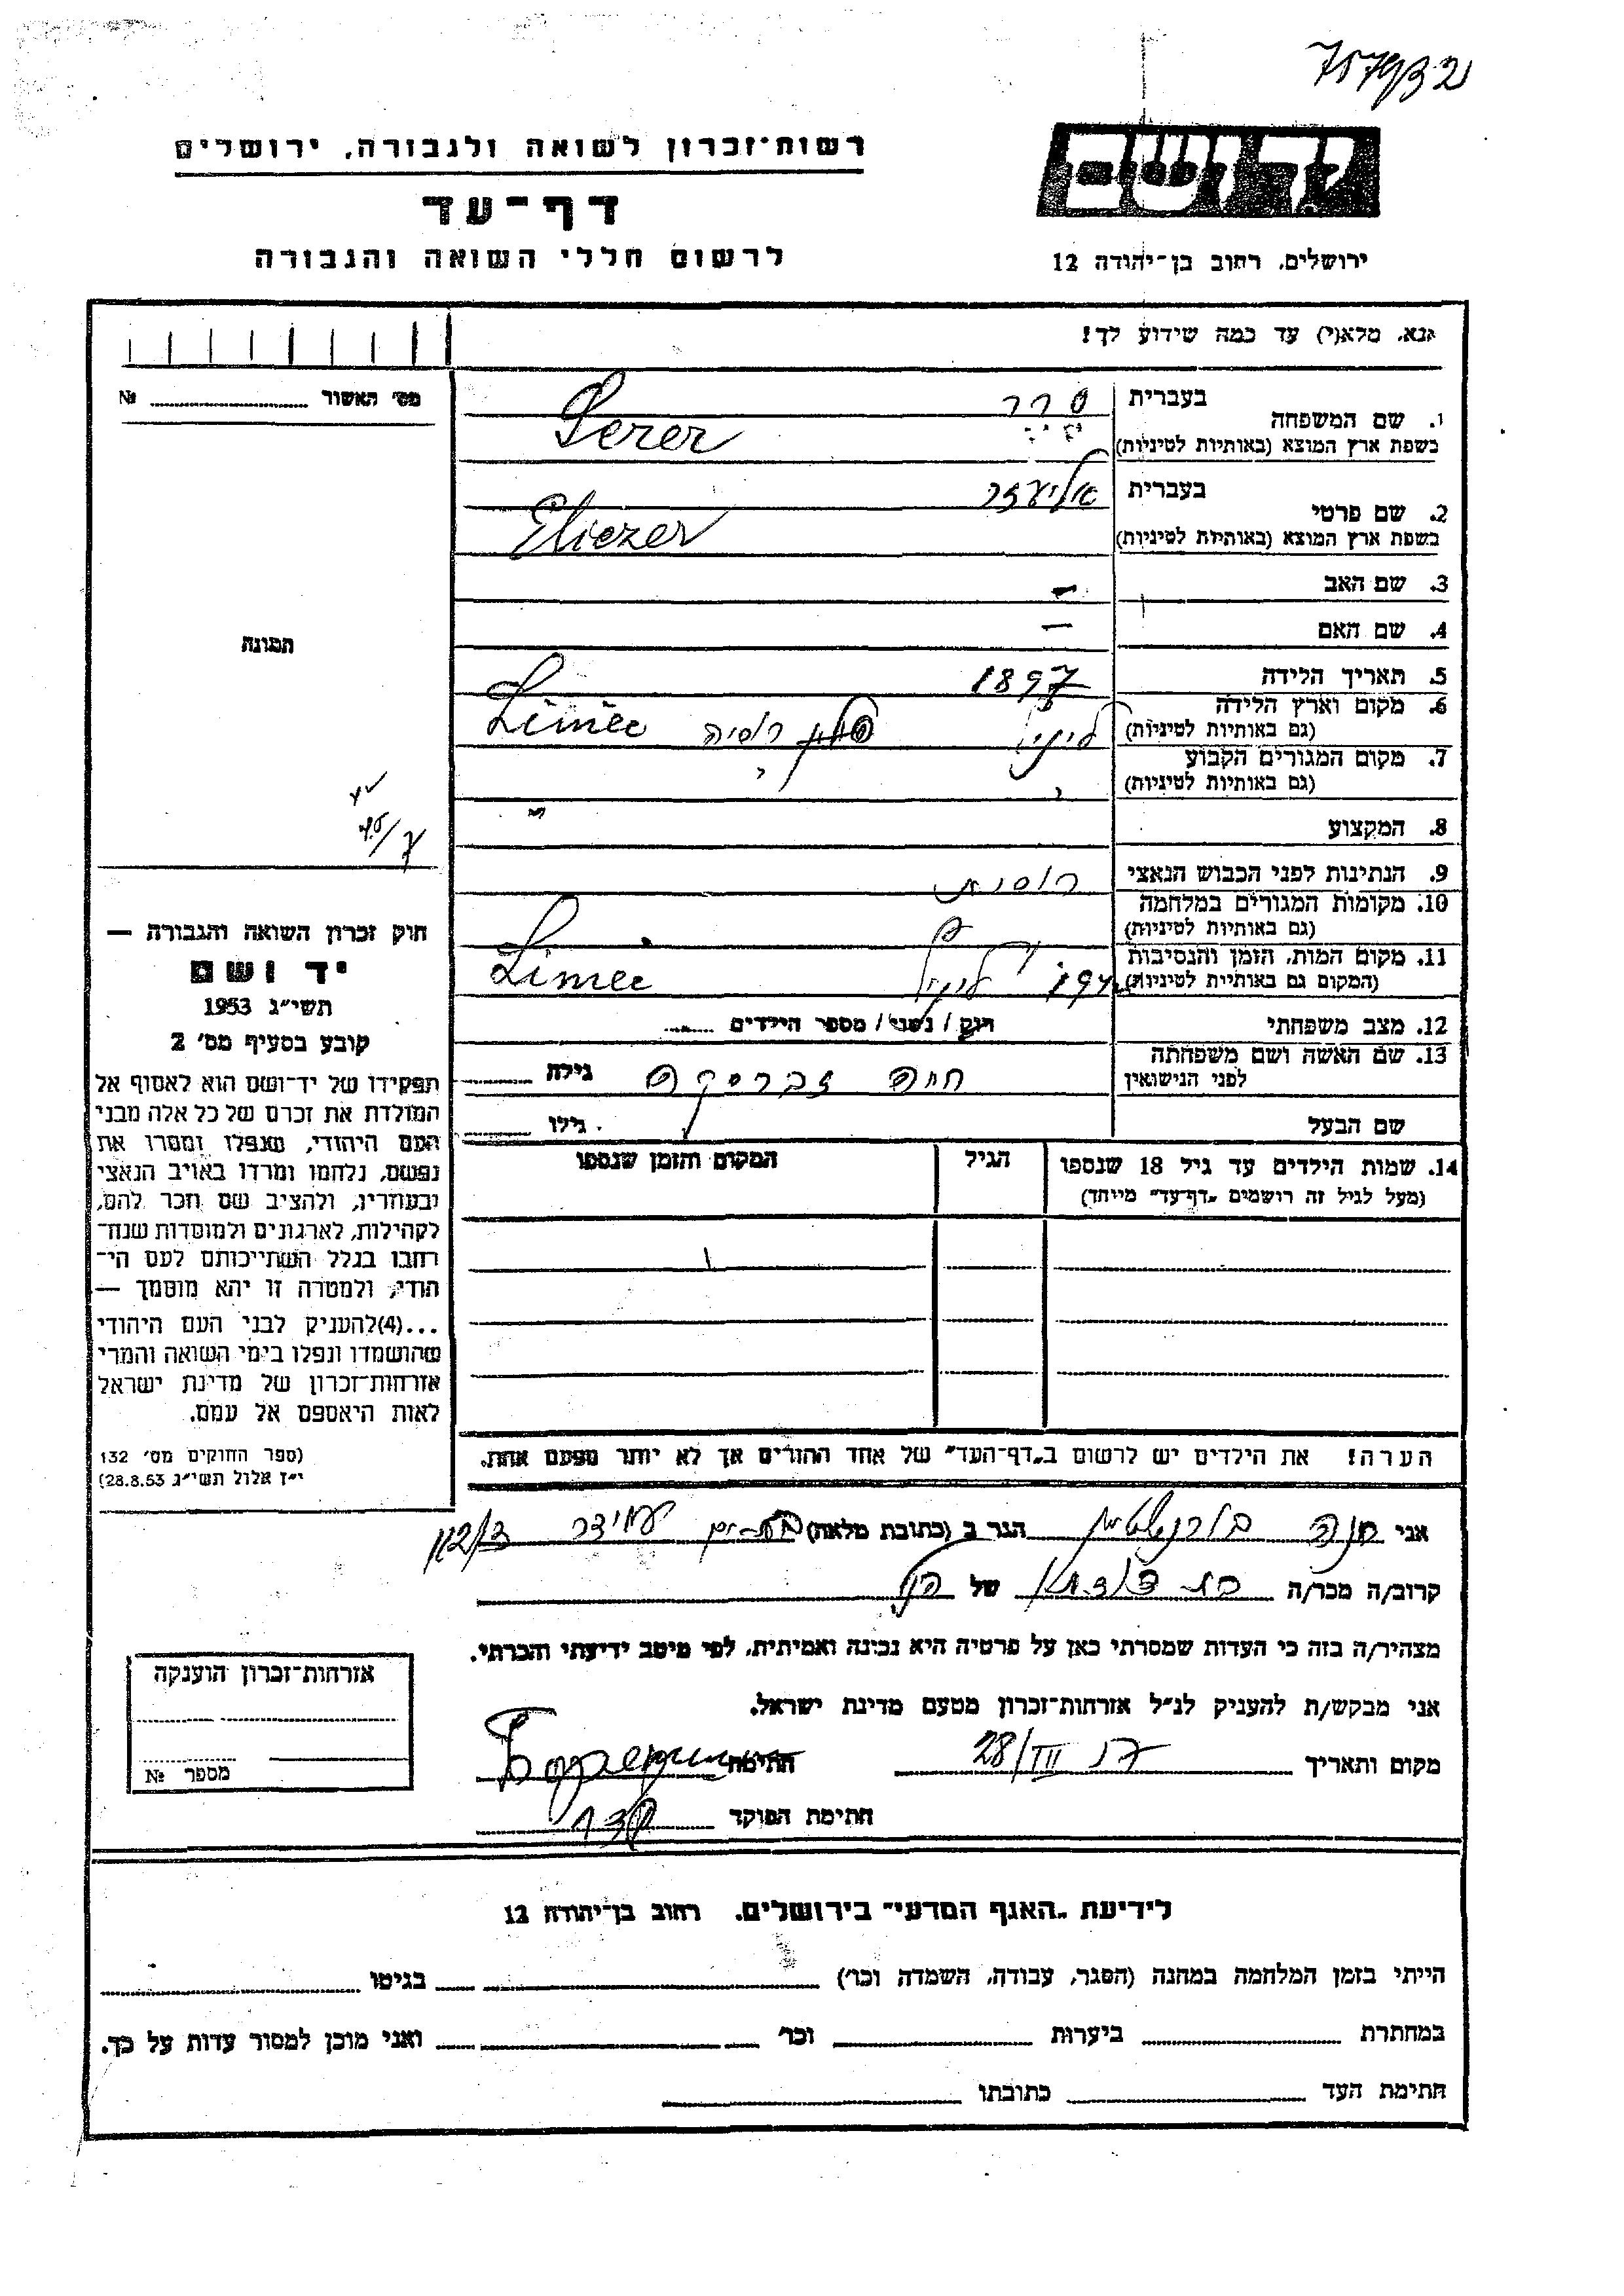 757932
רשות־זכרון לשואה ולגבורה, ירושלים
דף־עד
לרשום חללי השואה והגבורה
ידושם
ירושלים, רחוב בן־יהודה 12
נא, מלא(י) עד כמה שידוע לך!
מס׳ האשור №
1. שם המשפחה
בעברית סרר
בשפת ארץ המוצא (באותיות לטיניות) Serer
2. שם פרטי
בעברית אליעזר
בשפת ארץ המוצא (באותיות לטיניות) Eliezer
3. שם האב —
4. שם האם —
5. תאריך הלידה 1897
6. מקום וארץ הלידה
(גם באותיות לטיניות) רוסיה Liniec
7. מקום המגורים הקבוע
(גם באותיות לטיניות)
8. המקצוע
9. הנתינות לפני הכבוש הנאצי רוסית
10. מקומות המגורים במלחמה
(גם באותיות לטיניות)
11. מקום המות, הזמן והנסיבות
(המקום גם באותיות לטיניות) Liniec
12. מצב משפחתי רוק / נשוי / מספר הילדים
13. שם האשה ושם משפחתה
לפני הנישואין חיה גילה
שם הבעל גילו
14. שמות הילדים עד גיל 18 שנספו
(מעל לגיל זה רושמים „דף־עד״ מיוחד)
הגיל
המקום והזמן שנספו
הערה! את הילדים יש לרשום ב„דף־העד״ של אחד ההורים אך לא יותר מפעם אחת.
תמונה
חוק זכרון השואה והגבורה —
יד ושם
תשי״ג 1953
קובע בסעיף מס׳ 2
תפקידו של יד־ושם הוא לאסוף אל
המולדת את זכרם של כל אלה מבני
העם היהודי, שנפלו ומסרו את
נפשם, נלחמו ומרדו באויב הנאצי
ובעוזריו, ולהציב שם וזכר להם,
לקהילות, לארגונים ולמוסדות שנח־
רבו בגלל השתייכותם לעם הי־
הודי, ולמטרה זו יהא מוסמך —
...(4) להעניק לבני העם היהודי
שהושמדו ונפלו בימי השואה והמרי
אזרחות־זכרון של מדינת ישראל
לאות היאספם אל עמם.
(ספר החוקים מס׳ 132
י״ז אלול תשי״ג 28.8.53)
אני חנה הגר ב (כתובת מלאה) בת־ים עמידר
קרוב/ה מכר/ה בת דודתו של הנ״ל
מצהיר/ה בזה כי העדות שמסרתי כאן על פרטיה היא נכונה ואמיתית, לפי מיטב ידיעתי והכרתי.
אני מבקש/ת להעניק לנ״ל אזרחות־זכרון מטעם מדינת ישראל.
מקום ותאריך 28/III חתימה
חתימת הפוקד
אזרחות־זכרון הוענקה
מספר №
לידיעת „האגף המדעי״ בירושלים, רחוב בן־יהודה 12
הייתי בזמן המלחמה במחנה (הסגר, עבודה, השמדה וכו׳) בגיטו
במחתרת ביערות וכו׳ ואני מוכן למסור עדות על כך.
חתימת העד כתובתו